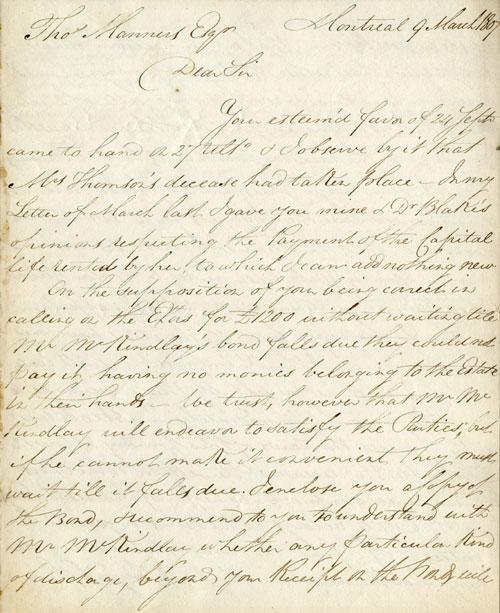 Thos Manners Esqr
Montreal 9 March 1807
Dear Sir
Your esteem'd favor of 24 Septr
came to hand on 27 Ulto & I observe by it that
Mrs Thomson's decease had taken place – In my
Letter of March last I gave you mine & Dr Blake's
opinions respecting the Payment of the Capital
liferented by her, to which I can add nothing new
On the supposition of you being correct in
calling on the Exrs for £1200 without waiting till
Mr McKindlay's bond falls due they could not
pay it having no monies belonging to the Estate
in their hands – We trust, however that Mr Mc
Kindlay will endeavor to satisfy the Parties, but
if he cannot make it convenient they must
wait till it falls due. I enclose you a Copy of
the Bond, & recommend to you to understand with
Mr McKindlay whether any Particular Kind
of discharge, beyond your Receipt on the Bond will